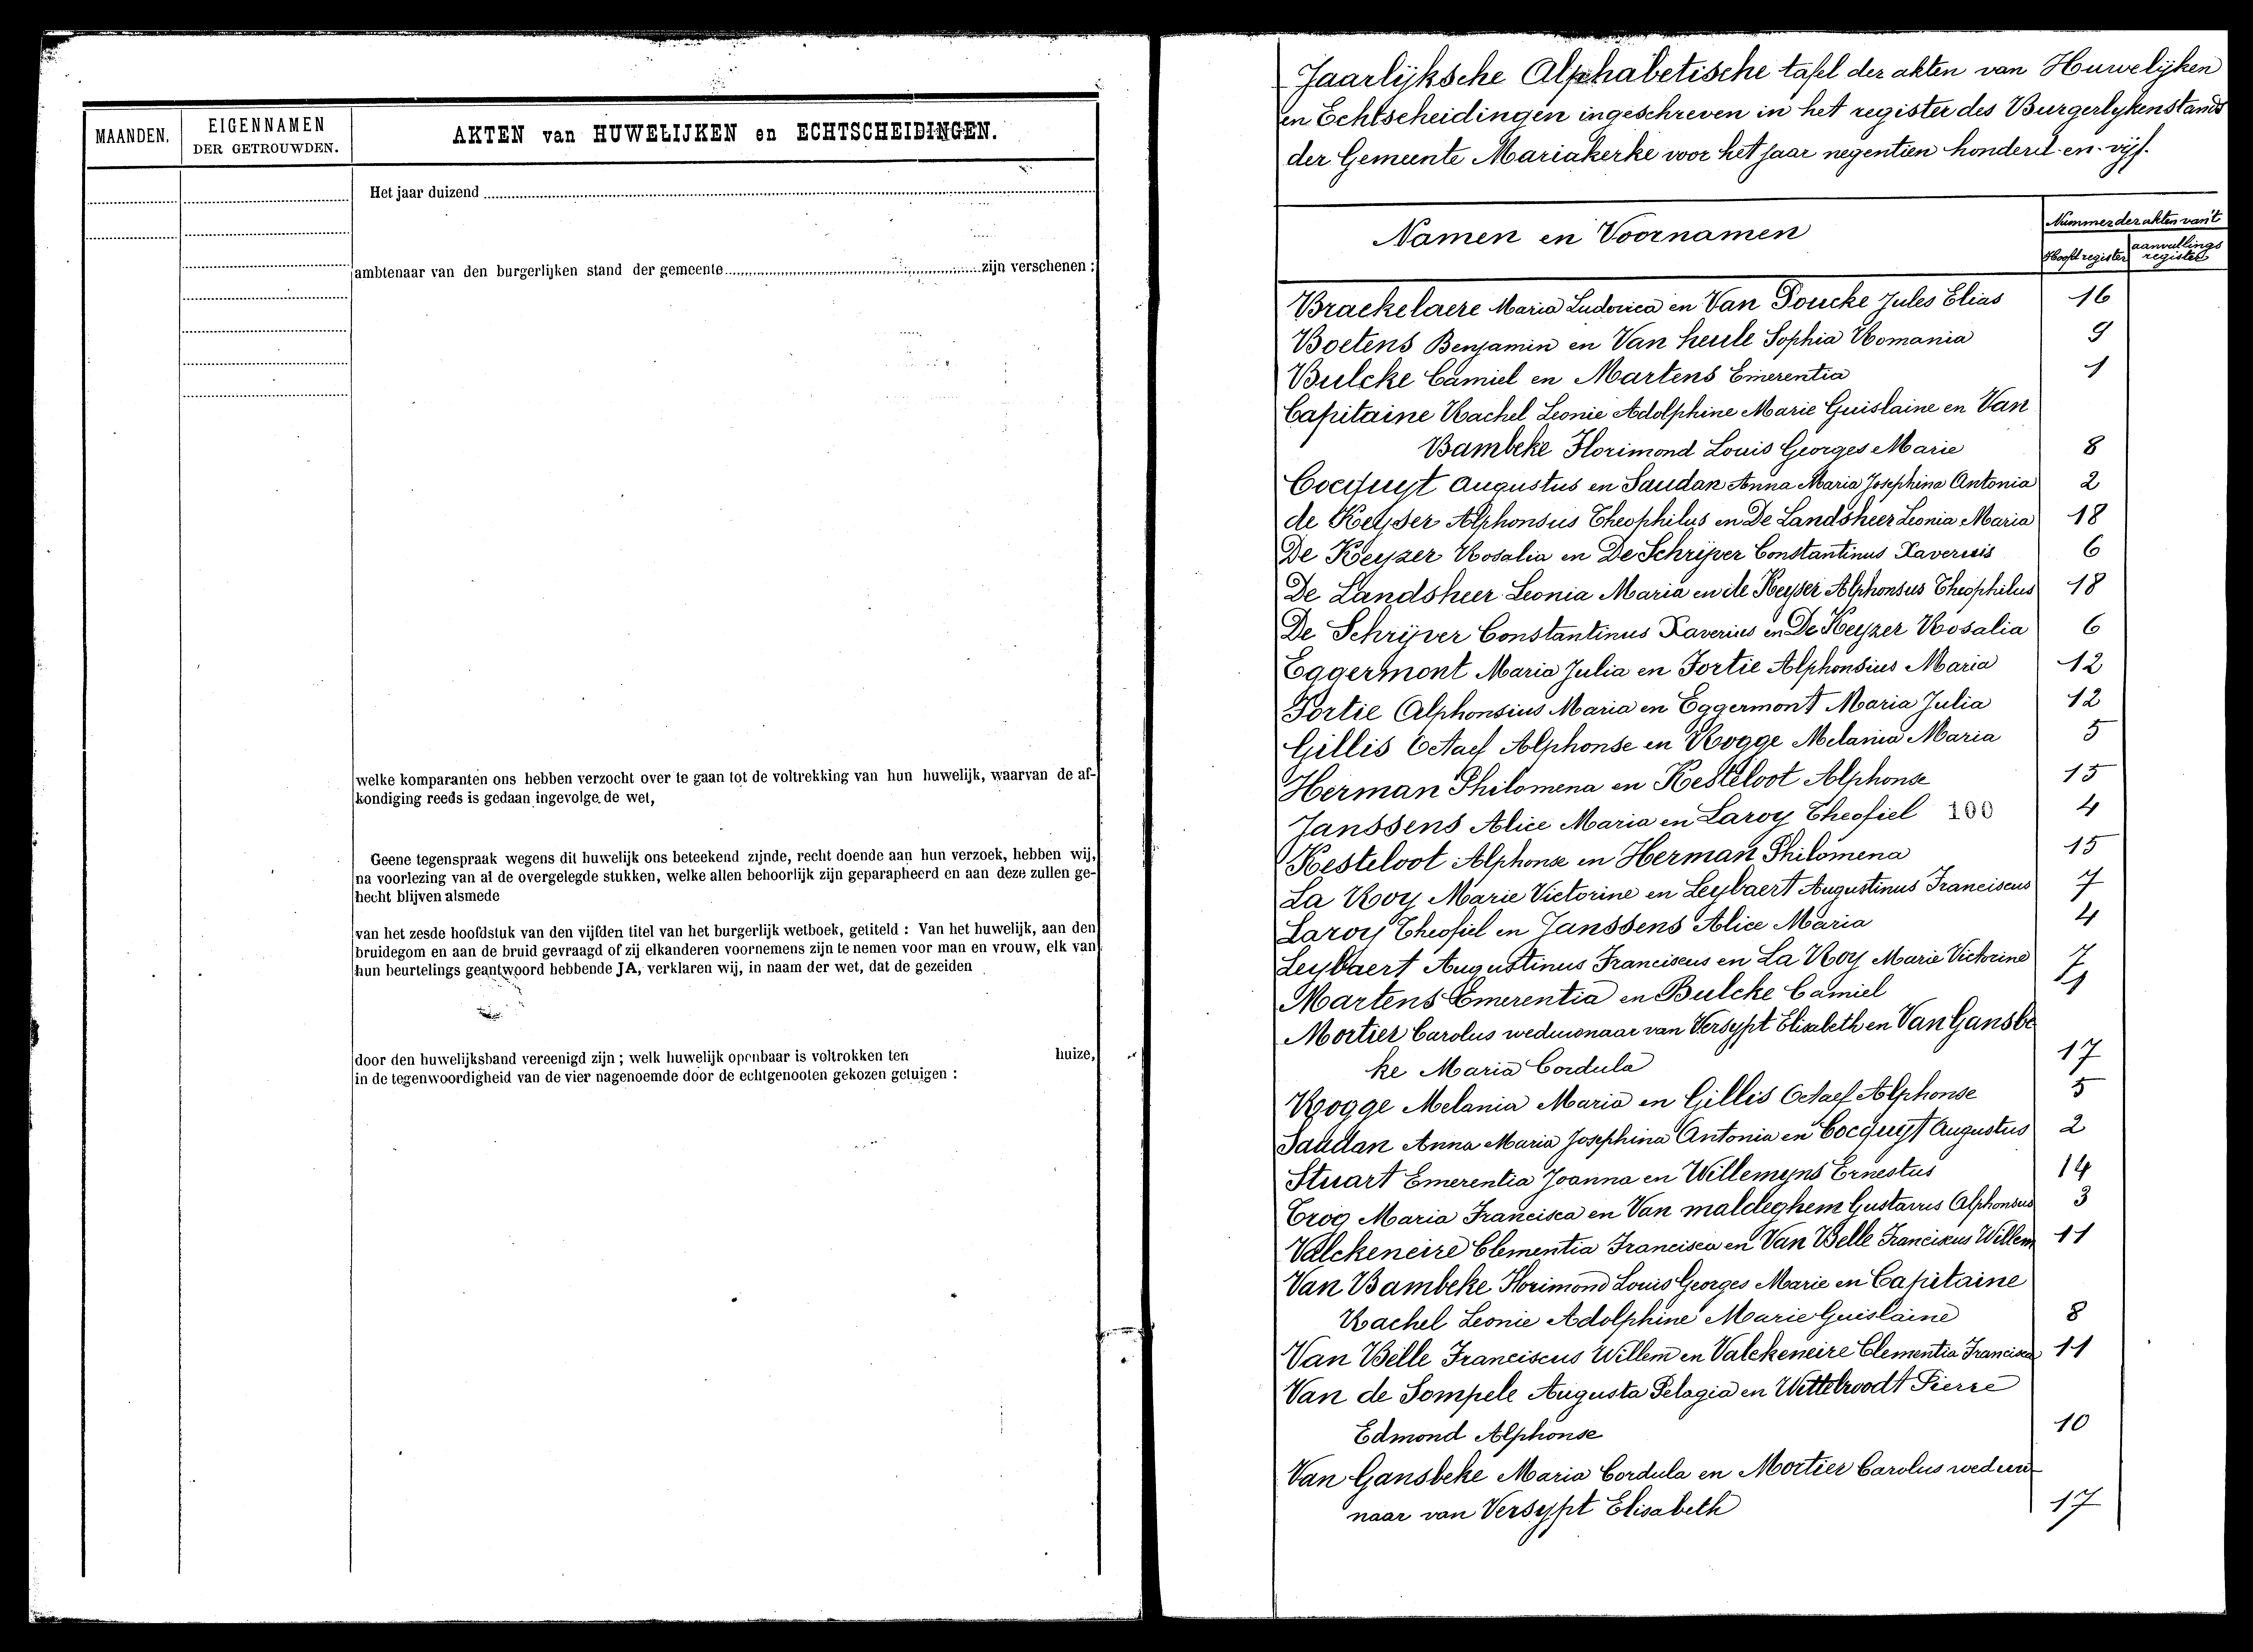 MAANDEN.
EIGENNAMEN
DER GETROUWDEN.
AKTEN van HUWELIJKEN en ECHTSCHEIDINGEN.
Het jaar duizend
ambtenaar van den burgerlijken stand der gemeente zijn verschenen :
welke komparanten ons hebben verzocht over te gaan tot de voltrekking van hun huwelijk, waarvan de af-
kondiging reeds is gedaan ingevolge de wet,
Geene tegenspraak wegens dit huwelijk ons beteekend zijnde, recht doende aan hun verzoek, hebben wij,
na voorlezing van al de overgelegde stukken, welke allen behoorlijk zijn geparapheerd en aan deze zullen ge-
hecht blijven alsmede
van het zesde hoofdstuk van den vijfden titel van het burgerlijk wetboek, getiteld : Van het huwelijk, aan den
bruidegom en aan de bruid gevraagd of zij elkanderen voornemens zijn te nemen voor man en vrouw, elk van
hun beurtelings geantwoord hebbende JA, verklaren wij, in naam der wet, dat de gezeiden
door den huwelijksband vereenigd zijn ; welk huwelijk openbaar is voltrokken ten huize,
in de tegenwoordigheid van de vier nagenoemde door de echtgenooten gekozen getuigen :
Jaarlijksche Alphabetische tafel der akten van Huwelijken
en Echtscheidingen ingeschreven in het register des Burgerlykenstands
der Gemeente Mariakerke voor het jaar negentien honderd-en-vijf.
Namen en Voornamen
Nummer der akten van't
Hoofdregister aanvullings
register
Brackelaere Maria Ludovica en Van Poucke Jules Elias 16
Boetens Benjamin en Van heule Sophia Romania 9
Bulcke Camiel en Martens Emerentia 1
Capitaine Rachel Leonie Adolphine Marie Guislaine en Van
Bambeke Florimond Louis Georges Marie 8
Cocquyt Augustus en Saudan Anna Maria Josephina Antonia 2
de Keyser Alphonsus Theophilus en De Landsheer Leonia Maria 18
De Keyzer Rosalia en De Schrijver Constantinus Xaverius 6
De Landsheer Leonia Maria en de Keyser Alphonsus Theophilus 18
De Schrijver Constantinus Xaverius en De Keyzer Rosalia 6
Eggermont Maria Julia en Fortie Alphonsius Maria 12
Fortie Alphonsius Maria en Eggermont Maria Julia 12
Gillis Octaef Alphonse en Rogge Melania Maria 5
Herman Philomena en Kesteloot Alphonse 15
Janssens Alice Maria en Laroy Theofiel 100 4
Kesteloot Alphonse en Herman Philomena 15
La Roy Marie Victorine en Leybaert Augustinus Franciscus 7
Laroy Theofiel en Janssens Alice Maria 4
Leybaert Augustinus Franciscus en La Roy Marie Victorine 7
Martens Emerentia en Bulcke Camiel 1
Mortier Carolus weduwnaar van Versypt Elisabeth en Van Gansbe
ke Maria Cordula 17
Rogge Melania Maria en Gillis Octaef Alphonse 5
Saudan Anna Maria Josephina Antonia en Cocquyt Augustus 2
Stuart Emerentia Joanna en Willemyns Ernestus 14
Trog Maria Francisca en Van maldeghem Gustavus Alphonsus 3
Valckeneire Clementia Francisca en Van Belle Franciscus Willem 11
Van Bambeke Florimond Louis Georges Marie en Capitaine
Rachel Leonie Adolphine Marie Guislaine 8
Van Belle Franciscus Willem en Valckeneire Clementia Francisca 11
Van de Sompele Augusta Pelagia en Pierre
Edmond Alphonse 10
Van Gansbeke Maria Cordula en Mortier Carolus weduw
naar van Versypt Elisabeth 17